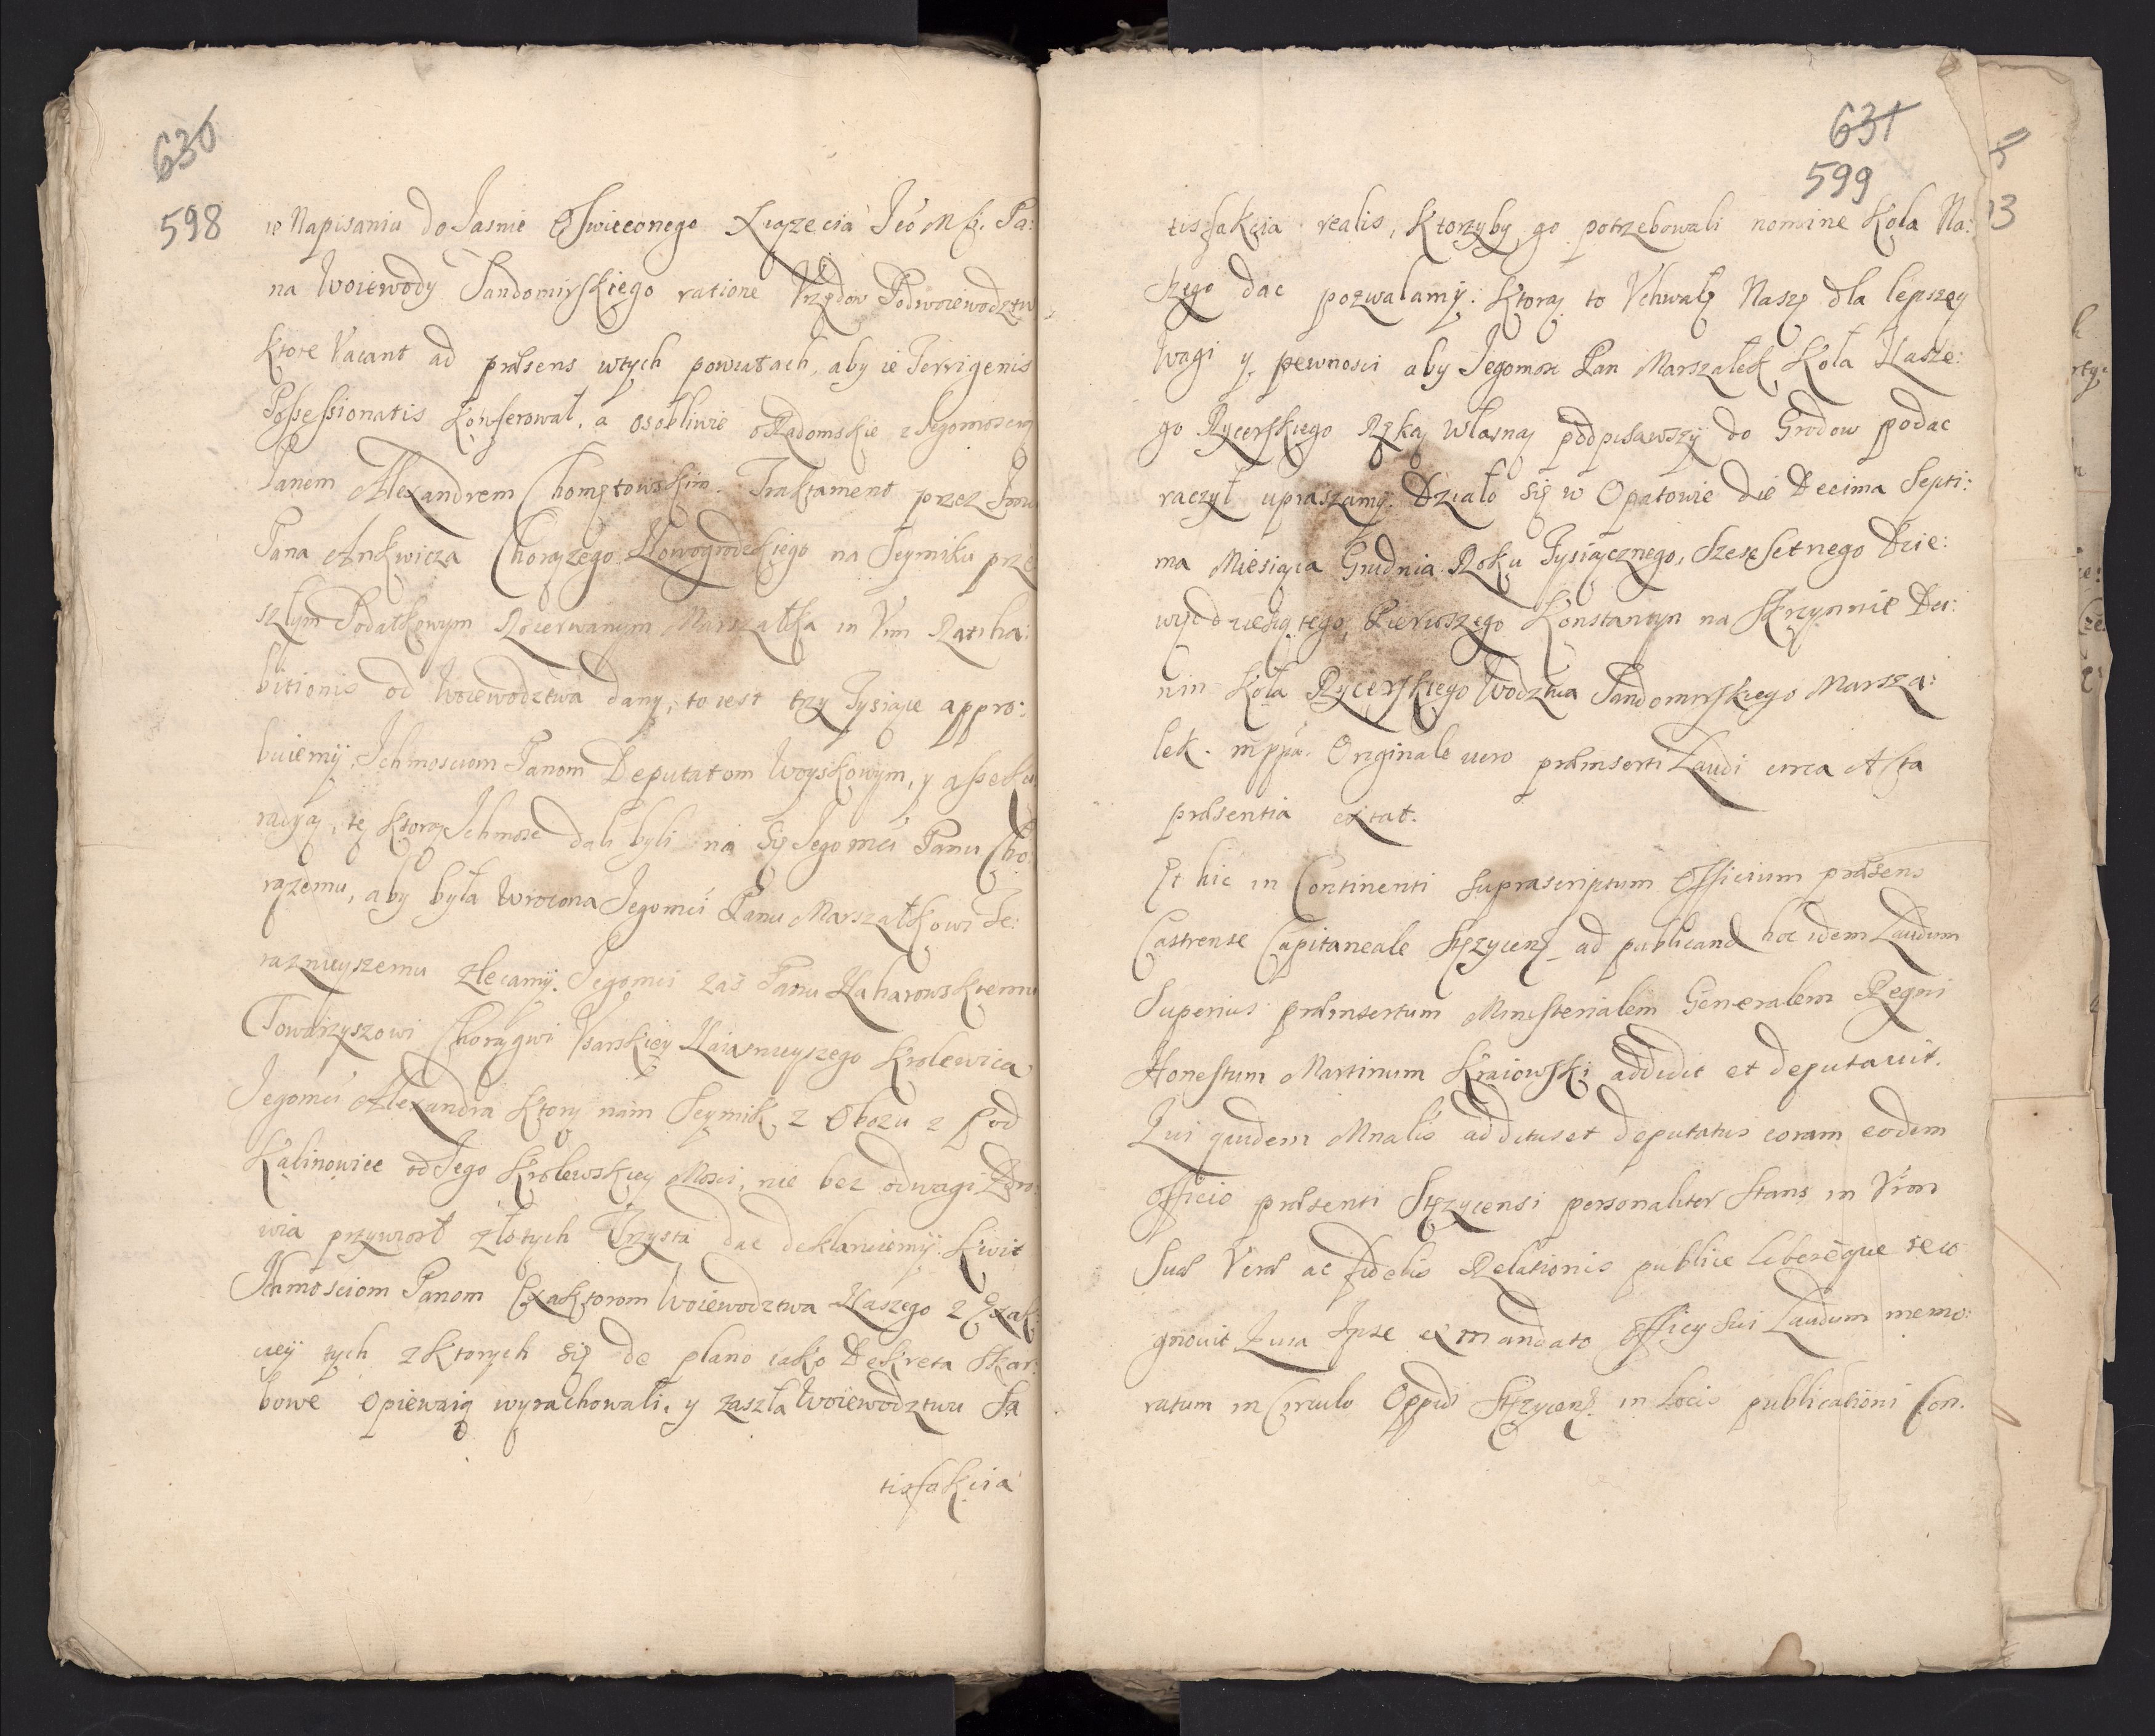 630
598
w Napisaniu do Jasnie Oswieconego Xiązęcia Jeo Mśś. Pa:
na Woiewody Sandomirskiego ratione Vrzędow Podwoiewodztw
ktore Vacant ad præsens wtych powiatach, aby ie Terrigenis
Possessionatis konferował, a osobliwie o Radomskie z Jegomoscią
Panem Alexandrem Chomętowskim. Traktament przez Jmci
Pana Ankwicza Chorązego Nowogrodzkiego na Seymiku prze
szłym Podatkowym Rozerwanym Marszałka in Vim Ratiha:
bitionis od Woiewodztwa dany, to iest trzy Tysiące appro:
buiemÿ, Ichmosciom Panom Deputatom Woyskowym, y asseku
racyą, tę ktorą Ichmosc dali byli na się Jegomci Panu Cho:
rązemu, aby była wrocona Jegomci Panu Marszałkowi Te:
raznieyszemu zlecamÿ. Jegomci zas Panu Naharowskiemu
Towarzyszowi Chorągwi Vsarskiey Naiasnieyszego Krolewica
Jegomci Alexandra ktory nam Seymik z Obozu z pod
Kalinowiec od Jego Krolewskiey Mosci, nie bez odwagi Zdro:
wia przywiozł złotych Trzysta dac deklaruiemÿ. Kwit
Ichmosciom Panom Exaktorom Woiewodztwa Naszego z Exak:
cyey tych z ktorych się de plano iako Dekreta Skar:
bowe opiewaią wyrachowali, y zaszła Woiewodztwu Sa
tisfakcia
631
599
tisfakcia realis, ktorzyby go potrzebowali nomine Koła Na:
szego dac pozwalamÿ. Ktorą to Vchwałę Naszę dla lepszey
Wagi y pewnosci aby Jegomosc Pan Marszałek Koła Nasze:
go Rycerskiego Ręką własną podpisawszÿ do Grodow podac
raczył upraszamÿ. Działo się w Opatowie die Decima Septi:
ma Miesiąca Grudnia Roku Tysiącznego, Szescsetnego Dzie:
więcdziesiątego, Pierwszego Konstantyn na Skrzynnie Du:
nin Koła Rycerskiego Wodztwa Sandomirskiego Marsza:
lek. mppa. Originale vero præinserti Laudi circa Acta
præsentia extat.
Et hic in Continenti Suprascriptum Officium præsens
Castrense Capitaneale Stęzycens. ad publicand hoc idem Laudum
Superius præinsertum Ministerialem Generalem Regni
Honestum Martinum Kraiowski addidit et deputavit.
Qui quidem Mnalis additus et deputatus coram eodem
Officio præsenti Stęzycensi personaliter Stans in Vim
Suæ Veræ ac fidelis Relationis publice libereque reco
gnovit Quia Ipse ex mandato Officy Sui Laudum memo:
ratum in Circulo Oppidi Stęzycens. in Locis publicationi Con.